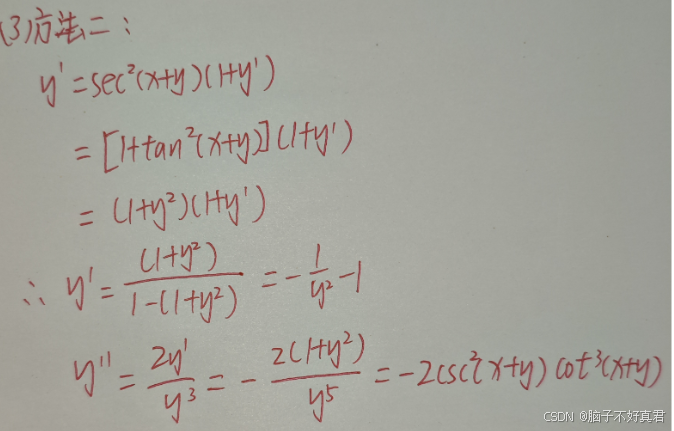 (3)方法二:
y' = sec²(x+y)(1+y')
= [1+tan²(x+y)](1+y')
= (1+y²)(1+y')
∴ y' = (1+y²)/(1-(1+y²)) = -1/y² - 1
y'' = 2y'/y³ = -2(1+y²)/y⁵ = -2csc²(x+y)cot³(x+y)
CSDN @脑子不好真君